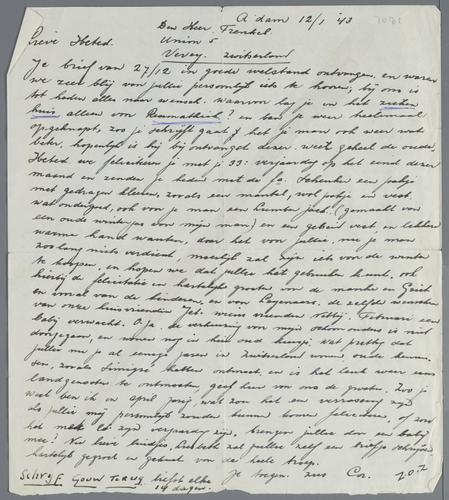 A'dam 12/1 '43
Den Heer Frenkel.
Union 5
Vevey. Zwitserland
Lieve Heted.
Je brief van 27/12 in goede welstand ontvangen, en waren
we zeer blij van jullie persoonlijk iets te hooren, bij ons is
tot heden alles naar wensch. Waarvoor lag je in het zieken
huis alleen voor Reumathiek? en ben je weer heelemaal
opgeknapt, zoo je schrijft gaat het je man ook weer wat
beter, hopenlijk is hij bij ontvangst dezer weer geheel de oude.
Heted we feliciteeren je met je 33e verjaardag op het eind dezer
maand en zenden je heden met de fa. Schenker een pakje
met gedragen kleeren, zooals een mantel, wol jakje en vest.
wat ondergoed, ook voor je man een Lumber jack! (gemaakt van
een oude winterjas van mijn man) en een gebreid vest, en lekkere
warme hand wanten, daar het voor jullie, nu je man
zoo lang niets verdient, moeilijk zal zijn iets voor de winter
te koopen, en hopen we dat jullie het gebruiken kunt, ook
hierbij de felicitatie en hartelijke groeten van de manke en
en vooral van de kinderen, en van de zelfde wenschen
van onze huisvrienden Februarie een
baby verwacht. O ja, de verhuizing van mijn schoonouders is niet
doorgegaan, en wonen nog in hun oud huisje, wat prettig dat
jullie nu je al eenige jaren in Zwitserland wonen, oude kennis
sen, zooals hebben ontmoet, en is het leuk weer eens
landgenooten te ontmoeten, geef hen van ons de groeten. Zoo je
weet ben ik in april jarig wat zou het een verrassing zijn
als jullie mij persoonlijk zouden kunnen komen feliciteeren, of zou
het met zijn verjaardag zijn, brengen jullie dan een baby
mee? Nu lieve luidjes, zal jullie zelf een briefje schrijven
hartelijk gegroet en gekust van de heele troep.
Je toegen. zus Co.
Schrijf gouw terug liefst elke
14 dagen.